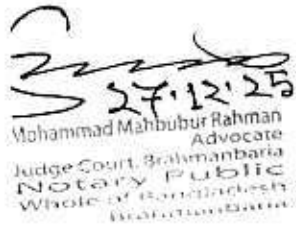 27.12.25
Mohammad Mahbubur Rahman
Advocate
Judge Court, Brahmanbaria
Notary Public
Whole of Bangladesh
Brahmanbaria